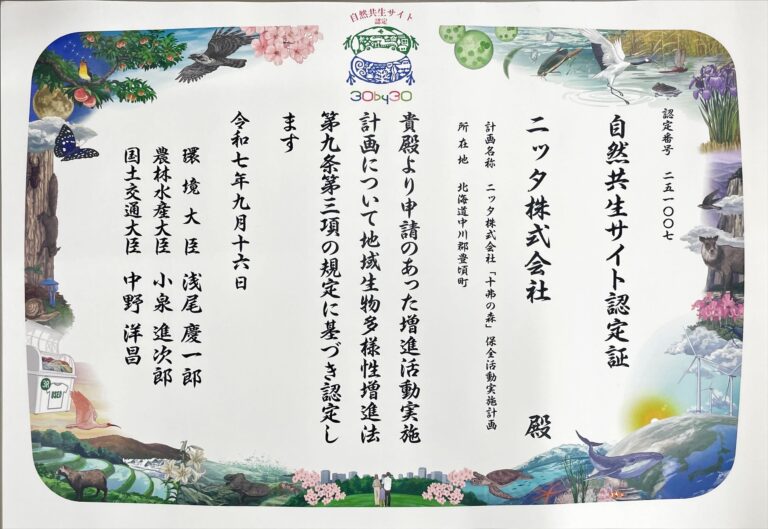 自然共生サイト
認定
30by30
認定番号 二五一〇〇七
自然共生サイト認定証
ニッタ株式会社 殿
計画名称 ニッタ株式会社「十弗の森」保全活動実施計画
所在地 北海道中川郡豊頃町
貴殿より申請のあった増進活動実施
計画について地域生物多様性増進法
第九条第三項の規定に基づき認定し
ます
令和七年九月十六日
環境大臣 浅尾慶一郎
農林水産大臣 小泉進次郎
国土交通大臣 中野洋昌
3R
USED